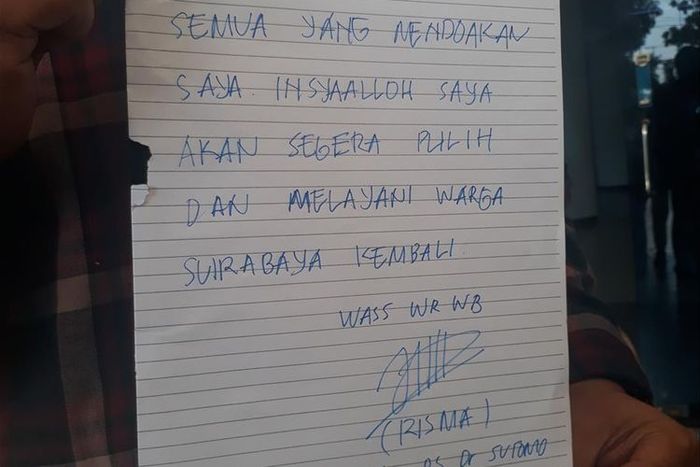 SEMUA YANG MENDOAKAN
SAYA. INSYAALLOH SAYA
AKAN SEGERA PULIH
DAN MELAYANI WARGA
SURABAYA KEMBALI.
WASS WR WB
(RISMA)
RS Dr SUTOMO